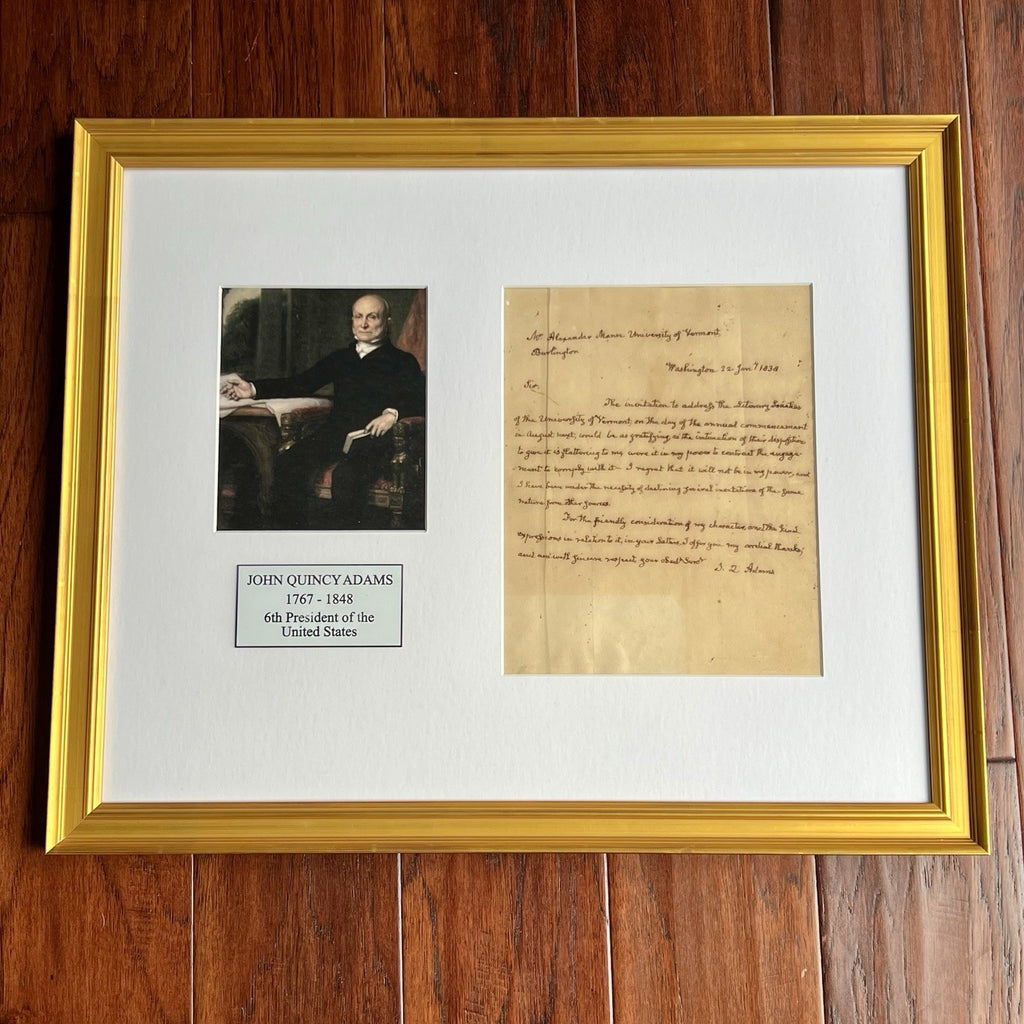 JOHN QUINCY ADAMS
1767 - 1848
6th President of the
United States
Mr. Alexander Mann University of Vermont,
Burlington
Washington 22 Jany 1838
Sir.
The invitation to address the Literary Societies
of the University of Vermont, on the day of the annual commencement
in August next, would be as gratifying, as the intimation of their disposition
to give it is flattering to me, were it in my power to contract the engage-
ment to comply with it— I regret that it will not be in my power, and
I have been under the necessity of declining several invitations of the same
nature from other sources
For the friendly consideration of my character, and the kind
expressions in relation to it, in your Letter, I offer you my cordial thanks;
and am with sincere respect your obedt Servt
J. Q. Adams